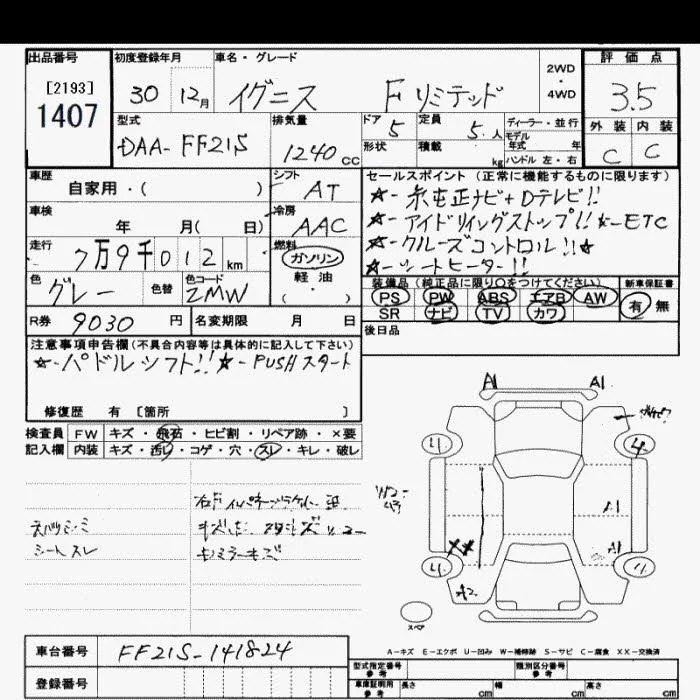 出品番号 初度登録年月 車名・グレード 2WD・4WD 評価点
[2193]
1407
30 12月 イグニス Fリミテッド 3.5
型式 排気量 ドア 定員 ディーラー・並行 外装 内装
DAA-FF21S 1240cc 5 5人 モデル年式 年 C C
形状 積載 kg ハンドル 左・右
車歴 シフト セールスポイント(正常に機能するものに限ります)
自家用・( ) AT ☆-純正ナビ+Dテレビ!!
車検 冷房 ☆-アイドリングストップ!!☆-ETC
年 月( 日) AAC ☆-クルーズコントロール!!☆
走行 燃料 ☆-シートヒーター!!
7万9千012km ガソリン
軽油
( ・ )
色 色替 色コード 装備品(純正品に限り○をつけてください) 新車保証書
グレー ZMW PS PW ABS エアB AW 有 無
SR ナビ TV カワ
R券 9030円 名変期限 月 日 後日品
注意事項申告欄(不具合内容等は具体的に記入して下さい)
☆-パドルシフト!!☆-PUSHスタート
修復歴 有 [箇所 ]
検査員 FW キズ・飛石・ヒビ割・リペア跡・×要
記入欄 内装 キズ・汚レ・コゲ・穴・スレ・キレ・破レ
シートスレ
A1 A1
A1
A1
XX
A2
スペア
A-キズ E-エクボ U-凹み W-補修跡 S-サビ C-腐食 XX-交換済
車台番号 FF21S-141824
登録番号
型式指定番号 参考 類別区分番号 参考
車庫証明用 参考 長さ cm 幅 cm 高さ cm